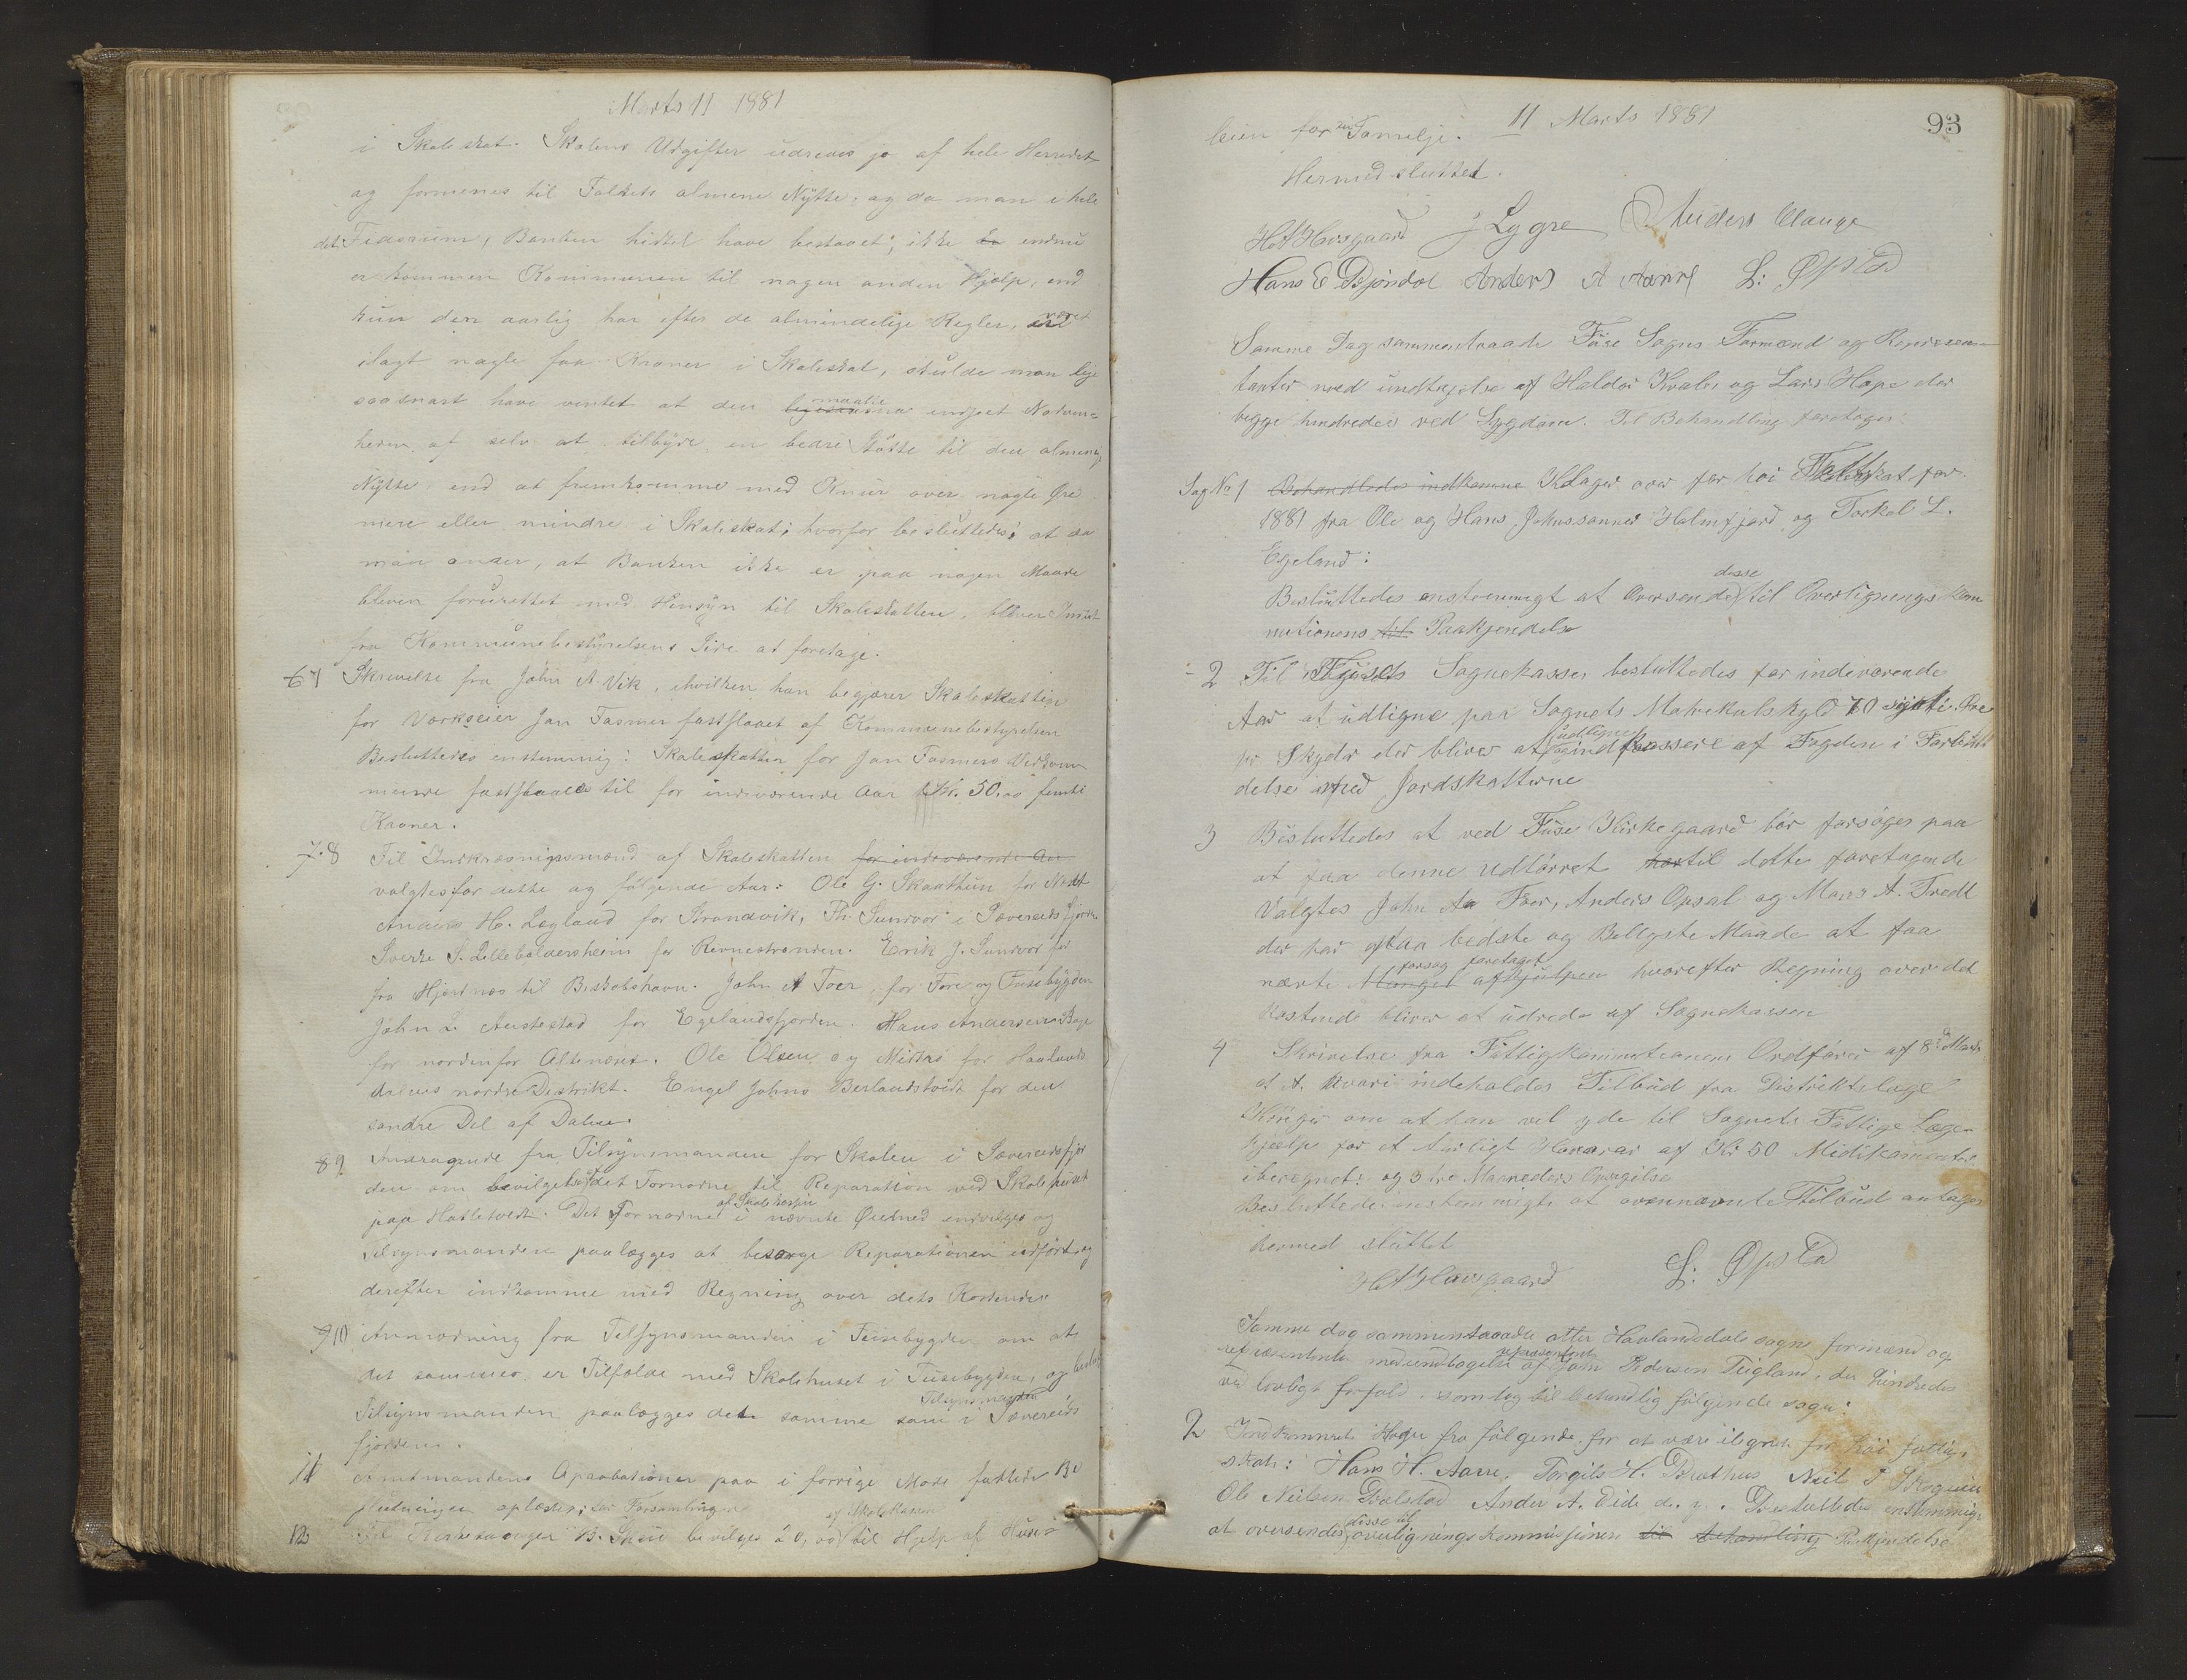 Marts 11 1881
i Skoleskat. Skolens Udgifter udredes jo af hele Herredet
og formenes til Folkets almene Nytte; og da man i hele
det Tidsrum, Banken hidtil have bestaaet, ikke endnu
er kommen Kommunen til nogen anden Hjælp, end
kun den aarlig har efter de almindelige Regler, været
ilagt nogle faa Kroner i Skoleskat, skulde man lige
saasnart have ventet at den maatte indseet Nødven=
heden af selv at tilbyde en bedre Støtte til den almene
Nytte end at fremkomme med Knur over nogle Øre
mere eller mindre i Skoleskat; hvorfor besluttedes: at da
man anser, at Banken ikke er paa nogen Maade
bleven forurettet med Hensyn til Skoleskatten, bliver Intet
fra Kommunebestyrelsens Side at foretage.
7 Skrivelse fra John A Vik, i hvilken han begjærer Skoleskatten
for Værkseier Jan Fasmer fastslaaet af Kommunebestyrelsen
Besluttedes enstemmig: Skoleskatten for Jan Fasmers Vedkom
mende fastslaaes til for indeværende Aar Kr. 50.00 femti
Kroner.
8 Til Indkrævningsmænd af Skoleskatten for indeværende Aar
valgtes for dette og følgende Aar: Ole G. Skaathun for
Anders H. Legland for Strandvik, Th. Sundvor i Sævereidsfjorden
Sverke S. Lillebaldersheim for Revnestranden. Erik J. Sundvor for
fra Hjartnæs til Biskobshavn. John A Foer, for Fore og Fusebygden
John L. Austestad for Egelandsfjorden. Hans Andersen
for nordenfor Altenæset. Ole Olsen for Haalands
dalens nordre Distrikt. Engel Johns Berlandstvedt for den
søndre Del af Dalen.
9 Andragende fra Tilsynsmanden for Skolen i Sævereidsfjor
den om bevilget det Fornødne til Reparation ved Skolehuset
paa Hatletvedt. Det Fornødne af Skolekassen i nævnte Øiemed indvilges og
Tilsynsmanden paalægges at besørge Reparationen udført og
derefter indkomme med Regning over dets Kostende
10 Anmodning fra Tilsynsmanden i Fusebygden om at
det samme er Tilfælde med Skolehuset i Fusebygden, og
Tilsynsmanden paalægges det samme som Tilsynsmanden i Sævereids
fjorden.
11 Amtmandens Aprobationer paa i forrige Møde fattede Be
slutninger oplæstes for Forsamlingen
12 Til Kirkesanger B. Skeie bevilges 20,00 af Skolekassen til Hjelp af Huse-
11 Marts 1881
93
leien for sin Familje.
Hermed sluttet.
H A Hovsgaard J Lygre Anders Vange
Hans E Bjøndal Anders A L: Øpstad
Samme Dag sammentraade Fuse Sogns Formænd og Repræsen-
tanter med undtagelse af Haldor Kvale og Lars Hope der
begge hindredes ved Sygdom. Til Behandling foretoges:
Sag No 1 Behandledes indkomne Klager over for høi Fattigskat for
1881 fra Ole og Hans Johnssønner Holmefjord og Torkel L.
Egeland:
Besluttedes enstemmigt at Oversende disse til Overligningskom
mitionens til Paakjendelse
- 2 Til Sognekasse besluttedes for indeværende
Aar at udligne paa Sognets Matrikulskyld 70 sytti Øre
pr Skyldr der bliver at udligne og indkassere af Fogden i Forbind
delse med Jordskatterne
3 Besluttedes at ved Fuse Kirkegaard bør forsøges paa
at faa denne udtørret til dette foretagende
Valgtes John A Foer, Anders Opsal og Mons A. Tredt
der har paa bedste og Billigste Maade at faa
nævnte Mangel afhjulpen forsøg foretaget hvorefter Regning over det
Kostende bliver at udrede af Sognekassen
4 Skrivelse fra Fattigkommitionens Ordfører af 8de Marts
d. A. hvori indeholdes Tilbud fra Distriktslæge
om at han vil yde til Sognets Fattige Læge-
hjælp for et Aarligt Honorar af Kr 50 Midikamenter
iberegnet; og 3 tre Maaneders Opsigelse
Besluttedes enstemmigt at ovennævnte Tilbud antages
hermed sluttet
H A Hovsgaard L: Øpstad
Samme dag sammentraadte atter Haalandsdals sogns formænd og
repræsentanter med undtagelse af repræsentant John Pedersen Teigland, der hindredes
ved lovligt forfald, som tog til behandling følgende sager:
Indkomne klager fra følgende for at være ilignet for høi fattig-
skat: Hans H. Aarre, Torgils H. Bræthus Neil T Skogseid
Ole Neilsen Bolstad Anders A. Eide d. y. Besluttedes enstemmigt
at oversendes disse til overlignings kommisjonen til behandling Paakjendelse